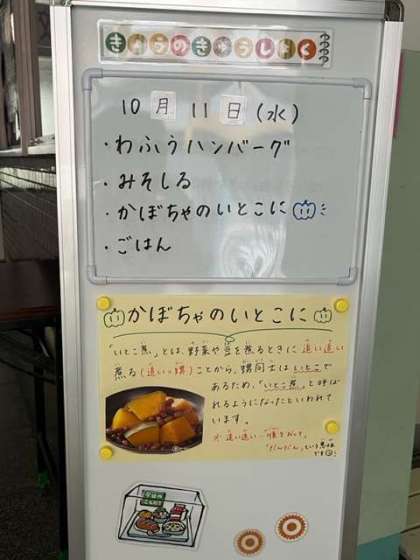 きょうのきゅうしょく
10月11日(水)
・わふうハンバーグ
・みそしる
・かぼちゃのいとこに
・ごはん
かぼちゃのいとこに
「いとこ煮」とは、野菜や豆を煮るときに追い追い
煮る(追い=甥)ことから、甥同士はいとこで
あるため、「いとこ煮」と呼ば
れるようになったといわれて
います。
※追い追い…順をおって、
「だんだん」という意味
です